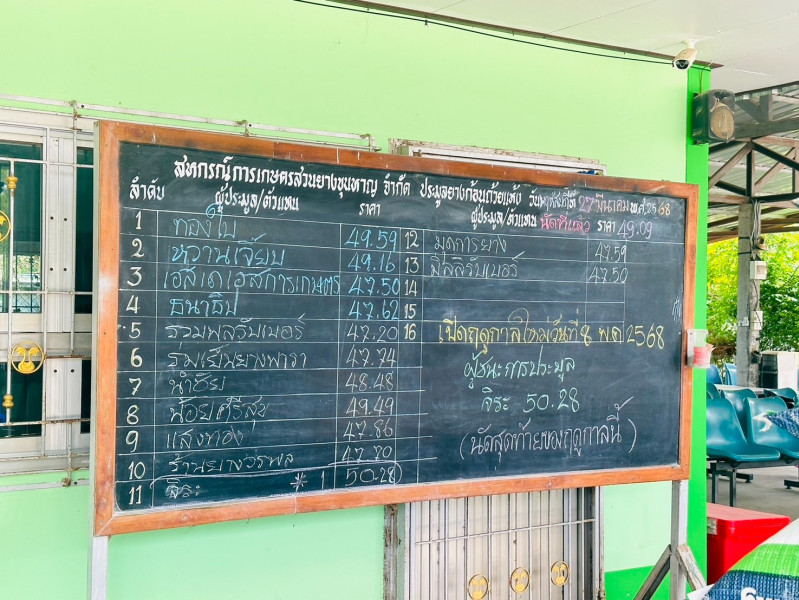 สหกรณ์การเกษตรสวนยางขุนหาญ จำกัด ประมูลยางก้อนถ้วยแห้ง วันพฤหัสที่ 27 มีนาคม พ.ศ.2568
ลำดับ ผู้ประมูล/ตัวแทน ราคา ผู้ประมูล/ตัวแทน นัดที่แล้ว ราคา 49.09
1 ทองใบ 49.59 12 มุดการยาง 47.59
2 หวานเจี๊ยบ 49.16 13 มีสลิรับเบอร์ 47.50
3 เอสเดเอสการเกษตร 47.50 14
4 ธนาธิป 47.62 15
5 รวมพลรับเบอร์ 47.20 16 เปิดฤดูกาลใหม่วันที่ 8 พ.ค 2568
6 ร่มเย็นยางพารา 47.74 ผู้ชนะการประมูล
7 นำชัย 48.48 จิระ 50.28
8 น้อยศรีสุข 49.49 (นัดสุดท้ายของฤดูกาลนี้)
9 แสงทอง 47.86
10 ร้านยางวรพล 47.70
11 จิระ * 1 50.28